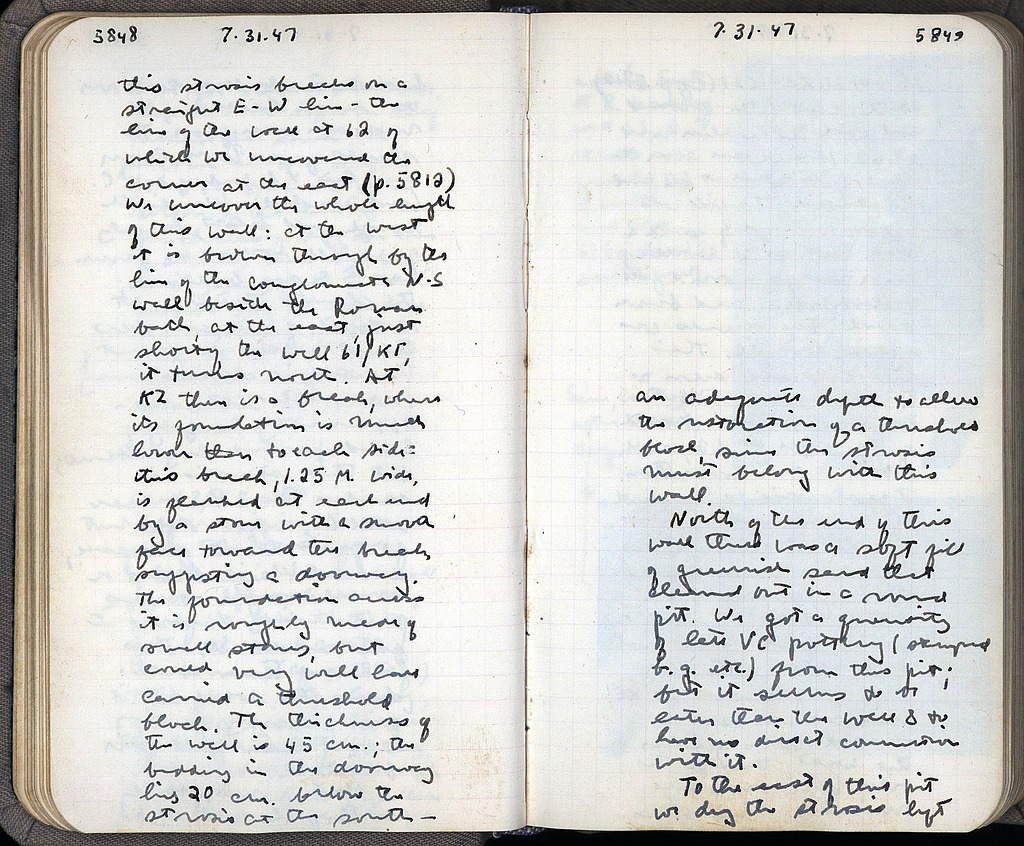 5848 7.31.47
this strosis breaks on a
straight E-W line - the
line of the wall at 62 of
which we uncovered the
corner at the east (p. 5812)
We uncover the whole length
of this wall: at the west
it is broken through by the
line of the conglomerate N-S
wall beside the Roman
bath, at the east, just
shorty the wall 61/ΚΓ,
it turns north. At
ΚΖ there is a break, where
its foundation is much
lower than to each side:
this break, 1.25 M. wide,
is flanked at each end
by a stone with a smooth
face toward the break
suggesting a doorway.
The foundation across
it is roughly made of
small stones, but
could very well have
carried a threshold
block. The thickness of
the wall is 45 cm.; the
bedding in the doorway
lies 20 cm. below the
strosis at the south -
7.31.47 5849
an adequate depth to allow
the restoration of a threshold
block, since this strosis
must belong with this
wall.
North of the end of this
wall there was a soft fill
of greenish sand that
cleaned out in a round
pit. We got a quantity
of late VC pottery (stamped
b.g. etc.) from this pit;
but it seems to be
later than the wall & to
have no direct connection
with it.
To the east of this pit
we dug the strosis left